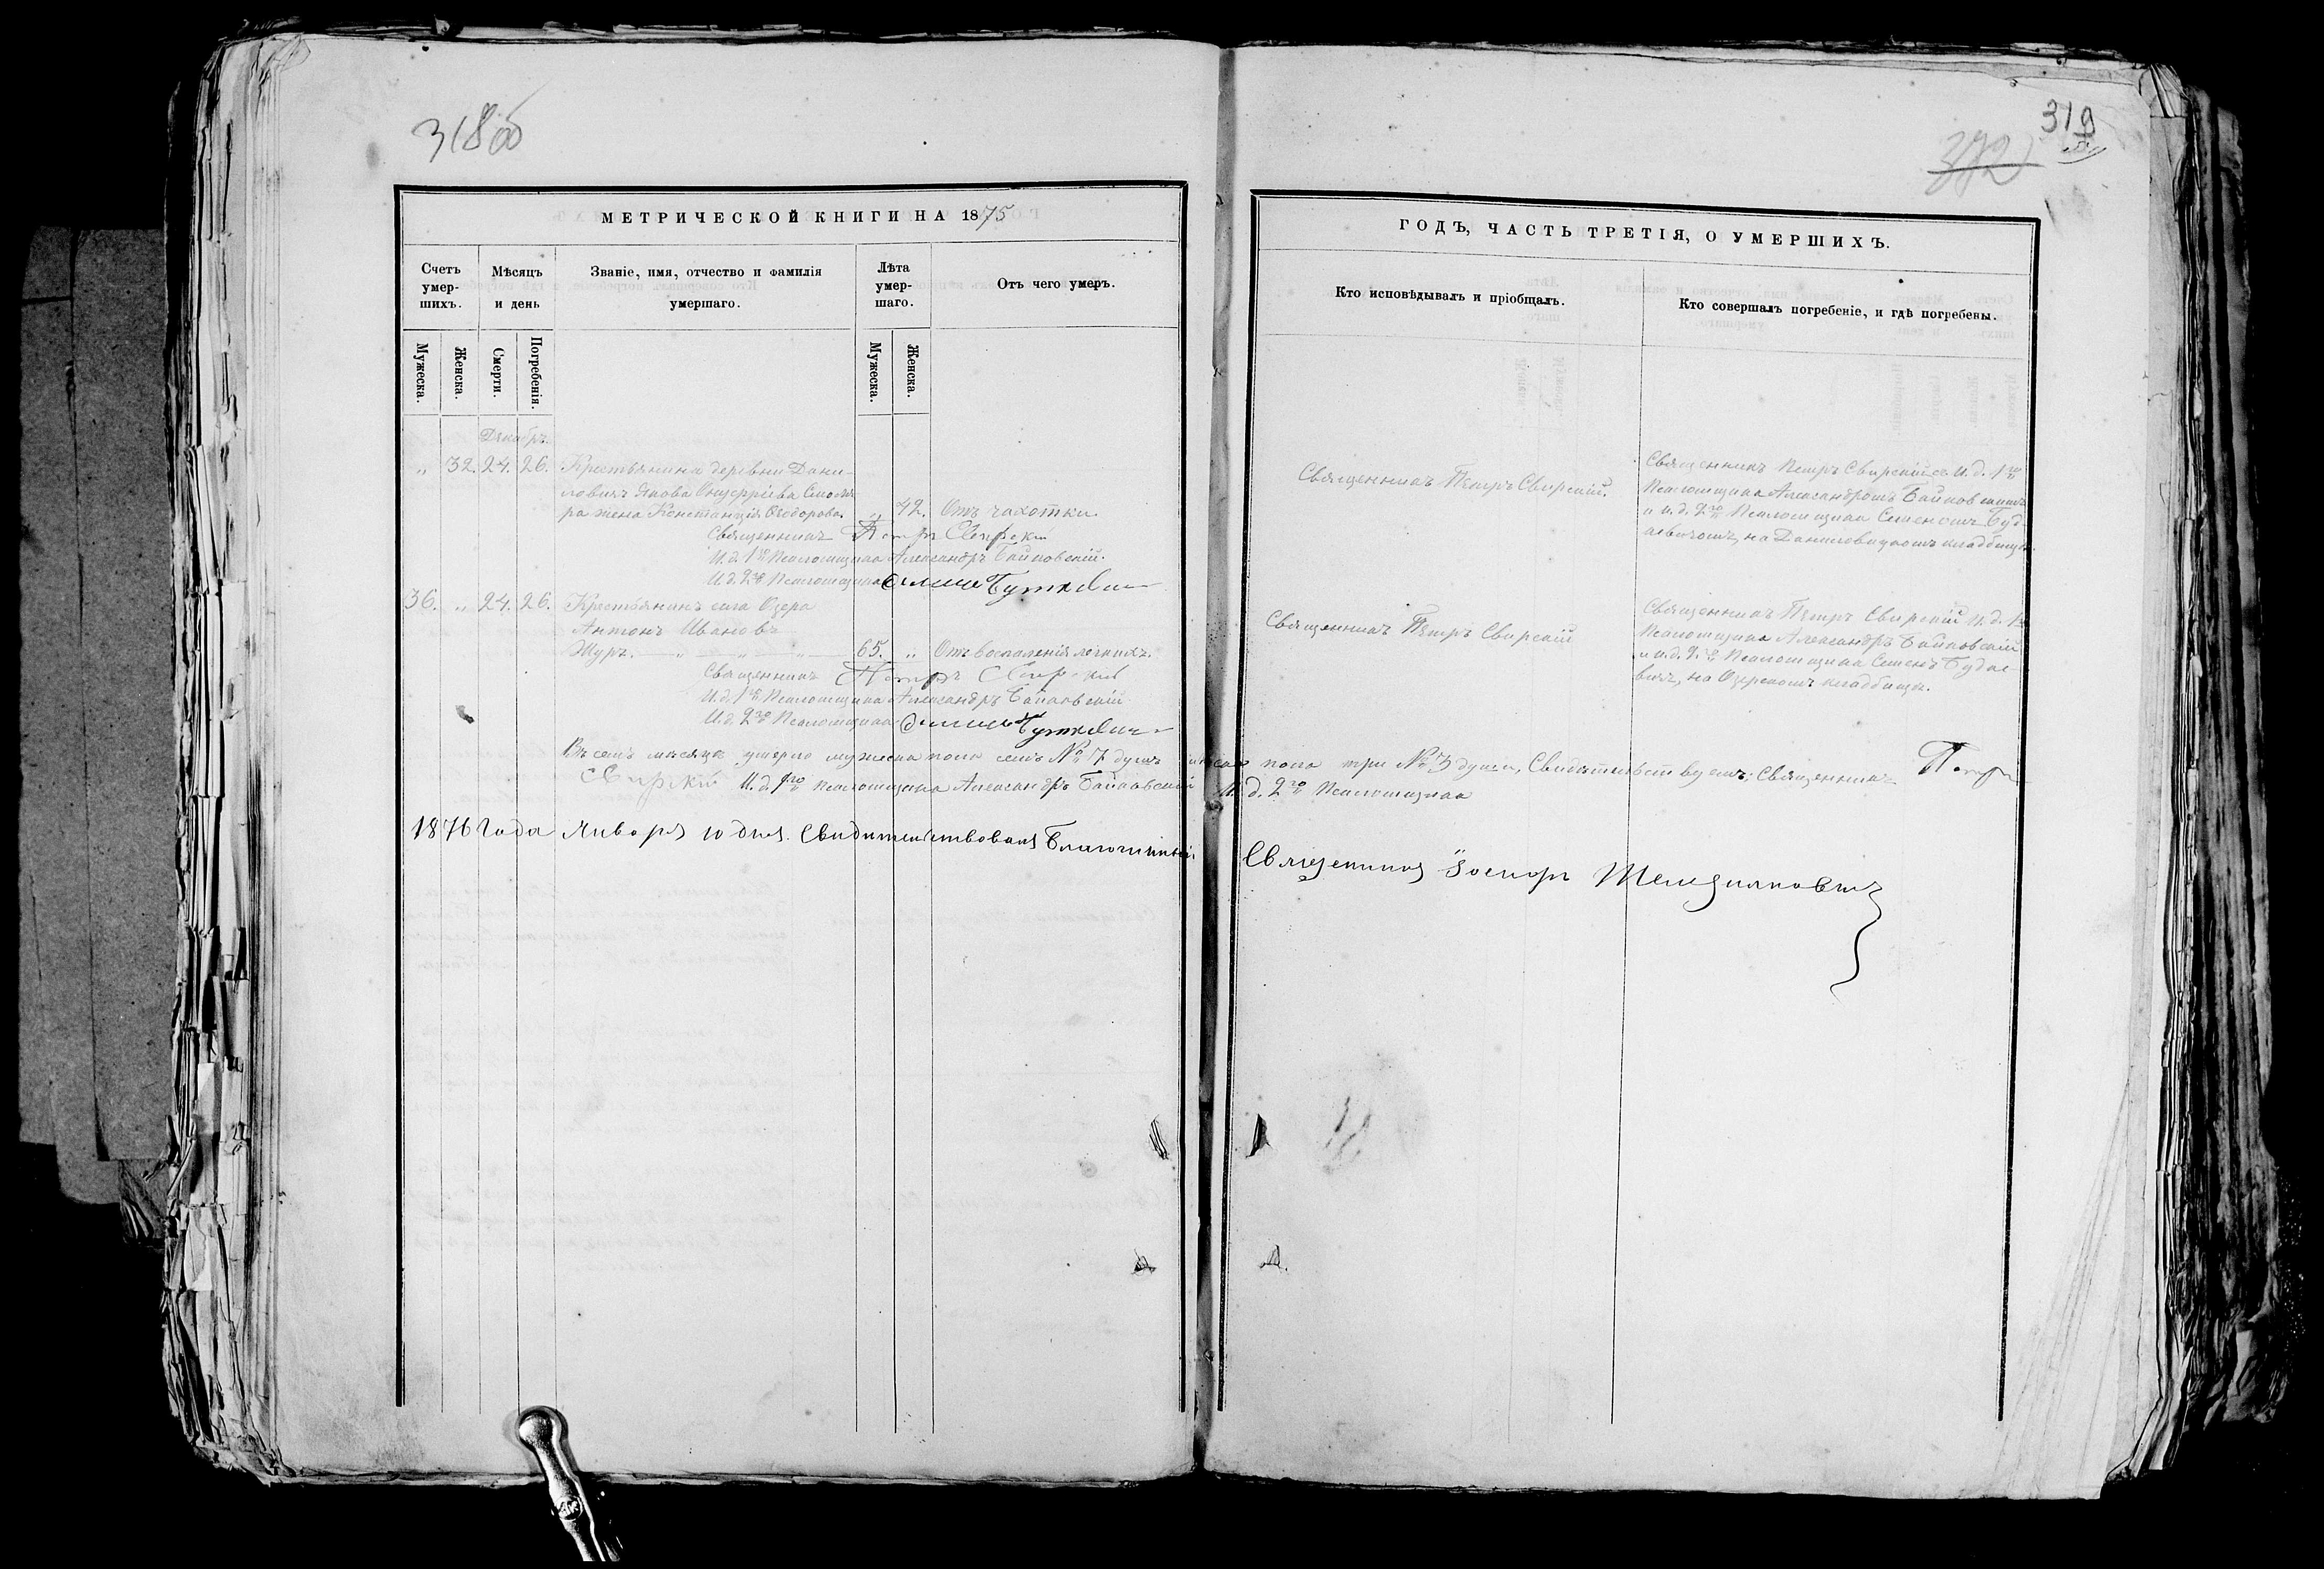 318об
319
382
МЕТРИЧЕСКОЙ КНИГИ НА 1875
ГОДЪ, ЧАСТЬ ТРЕТІЯ, О УМЕРШИХЪ.
Счетъ умер-шихъ.
Мѣсяцъ и день
Званіе, имя, отчество и фамилія умершаго.
Лѣта умер-шаго.
Отъ чего умеръ.
Кто исповѣдывалъ и пріобщалъ.
Кто совершалъ погребеніе, и гдѣ погребены.
Мужеска.
Женска.
Смерти.
Погребенія.
Мужеска.
Женска.
Декабрь
„ 32. 24. 26. Крестьянина деревни Дани-
ловичъ Якова
ра жена Констанція Ѳеодорова. „ 42. Отъ чахотки.
Священникъ Петръ Свирскій
И.д. 1го Псаломщика Александръ Байковскій.
И.д. 2го Псаломщика
Священникъ Петръ Свирскій.
Священникъ Петръ Свирскій с. И.д. 1го
Псаломщика Александромъ Байковскимъ
и и.д. 2го Псаломщика Семеномъ Буд-
кевичомъ, на Даниловицкомъ кладбищѣ.
36. „ 24. 26. Крестьянинъ села Озера
Антонъ Ивановъ
Журъ. — „ — „ — „ — 65. „ Отъ воспаленія легкихъ.
Священникъ Петръ Свирскій
И.д. 1го Псаломщика Александръ Байковскій
И.д. 2го Псаломщика
Священникъ Петръ Свирскій
Священникъ Петръ Свирскій и.д. 1го
Псаломщика Александръ Байковскій
и и.д. 2го Псаломщика Семенъ Будке-
вичъ, на Озерскомъ кладбищѣ.
Въ семъ мѣсяцѣ умерло мужеска пола семь № 7 душъ женска пола три № 3 души, Свидѣтельствуемъ: Священникъ Петръ
Свирскій И.д. 1го псаломщика Александръ Байковскій И.д. 2го Псаломщика
1876 года Января 10 дня. Свидѣтельствовалъ Благочинный
Священникъ